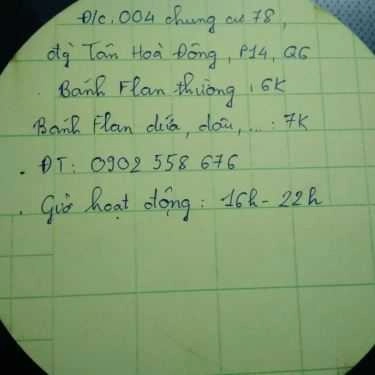 Đ/c: 004 chung cư 78,
đg Tân Hoà Đông, P14, Q6
. Bánh Flan thường : 6K
Bánh Flan dứa, dâu, ... : 7K
. ĐT: 0902 558 676
. Giờ hoạt động : 16h - 22h